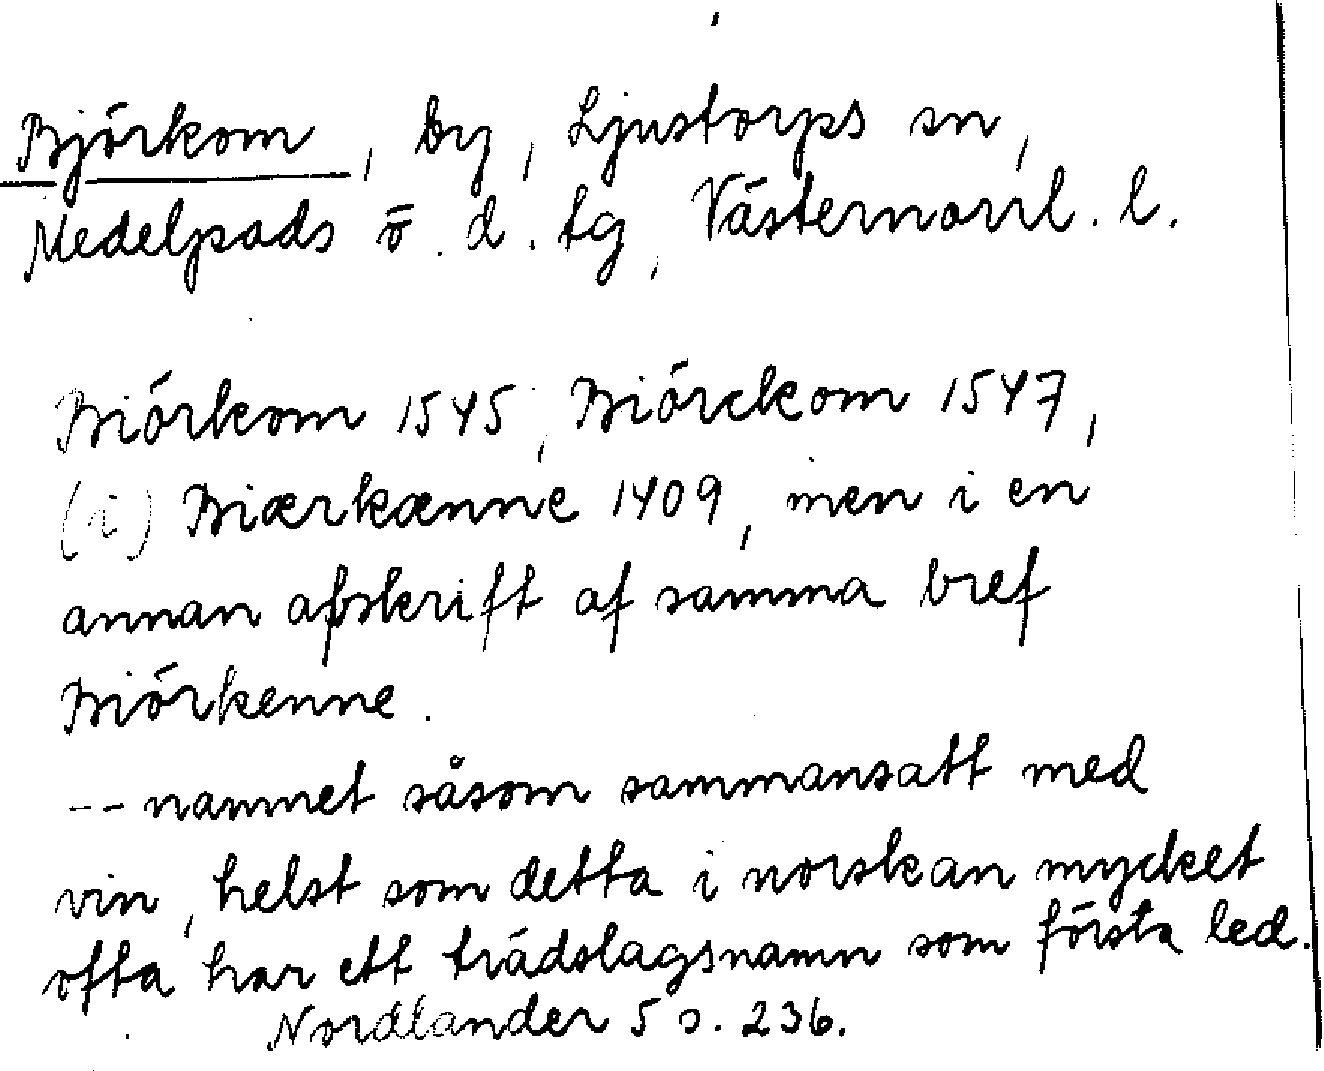 Björkom, by, Ljustorps sn,
Medelpads ö. d. tg, Västernorrl. l.
Biörkom 1545, Biörckom 1547,
(i) Biærkænne 1409, men i en
annan afskrift af samma bref
Biörkenne.
-- namnet såsom sammansatt med
vin, helst som detta i norskan mycket
ofta har ett trädslagsnamn som första led.
Nordlander 5 s. 236.